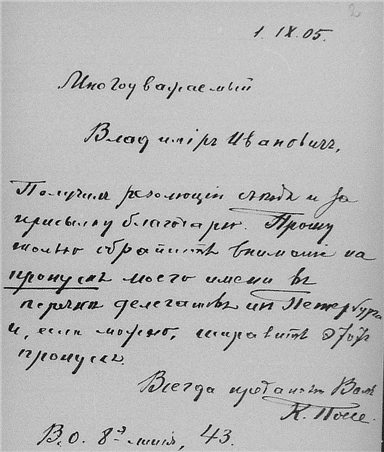 2
1. IX. 05.
Многоуважаемый
Владиміръ Ивановичъ,
Получилъ резолюціи съѣзда и за
присылку благодарю. Прошу
только обратить вниманіе на
пропускъ моего имени въ
перечнѣ делегатовъ изъ Петербурга
и, если можно, исправить этотъ
пропускъ.
Всегда преданный Вамъ
К. Поссе.
В. О. 8-я линія, 43.